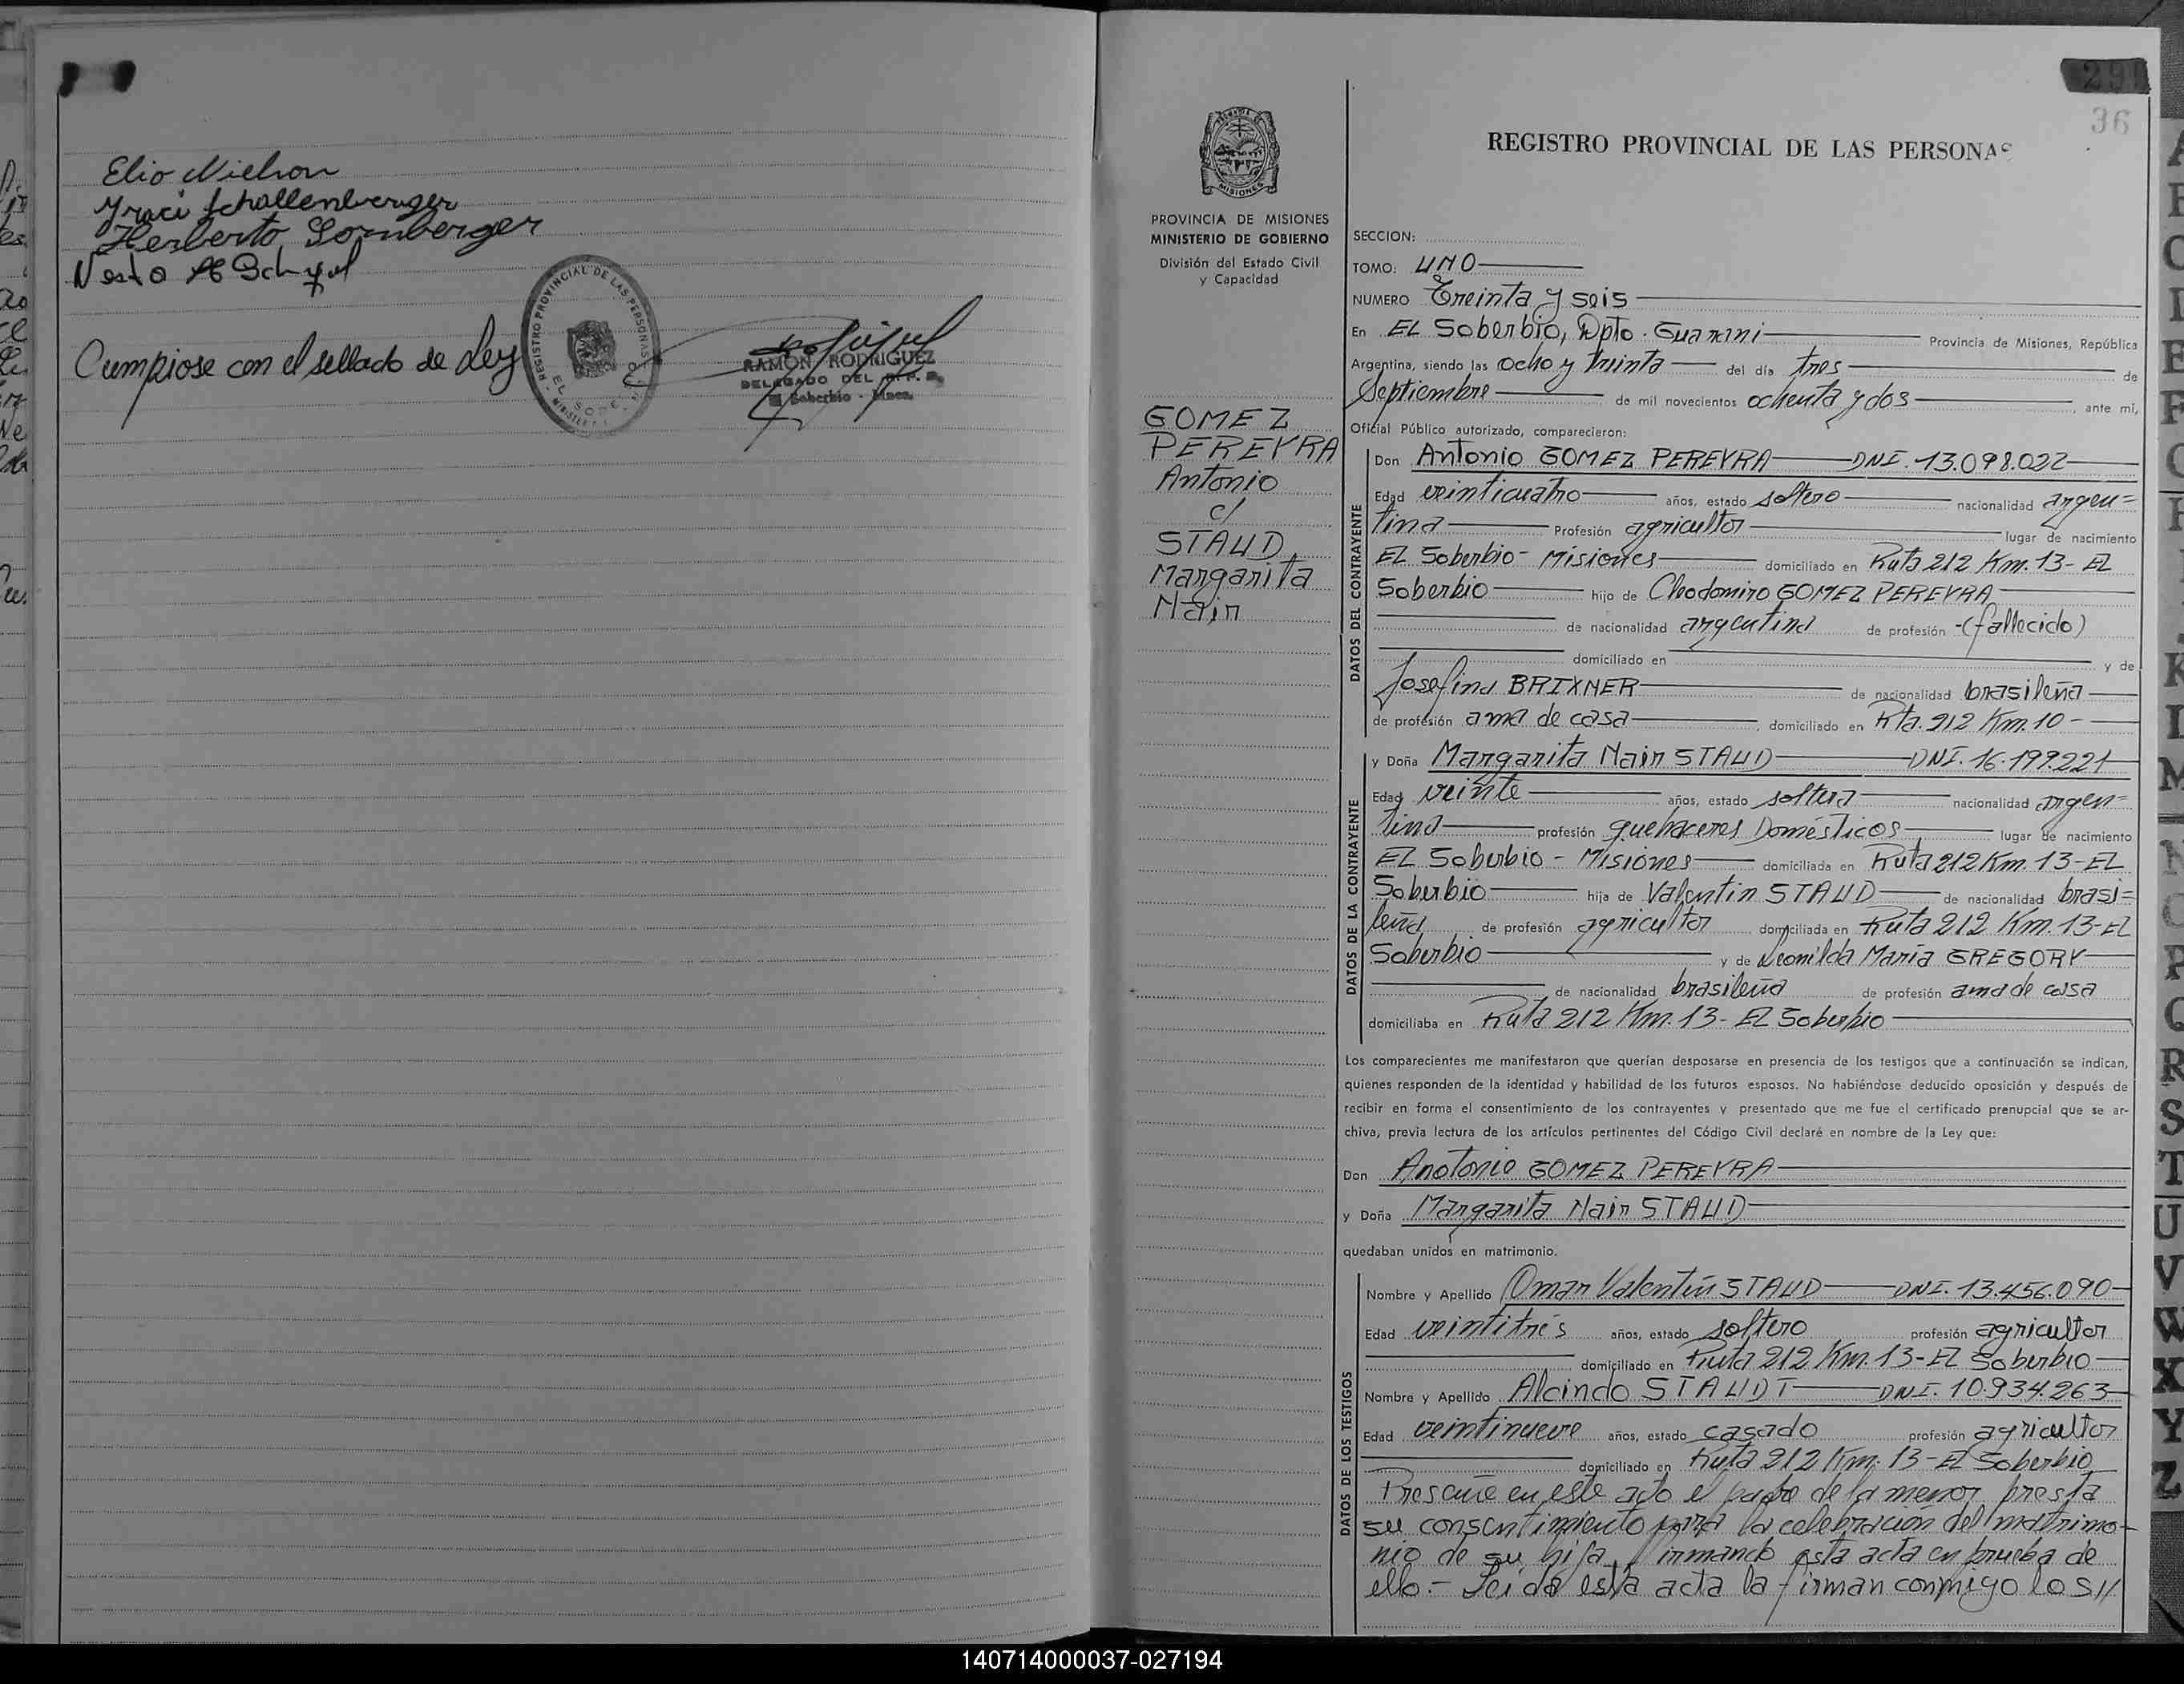 Elio Nielson
Yraci Schallenberger
Herberto Sornberger
Cumpiose con el sellado de Ley
REGISTRO PROVINCIAL DE LAS PERSONAS
RAMON RODRIGUEZ
DELEGADO DEL R. P. P.
El Soberbio - Mnes.
29
36
MISIONES
PROVINCIA DE MISIONES
MINISTERIO DE GOBIERNO
División del Estado Civil
y Capacidad
GOMEZ
PEREYRA
Antonio
c/
STAUD
Margarita
Nair
REGISTRO PROVINCIAL DE LAS PERSONAS
SECCION:
TOMO: UNO
NUMERO Treinta y seis
En EL Soberbio, Dpto. Guarani Provincia de Misiones, República
Argentina, siendo las ocho y treinta del día tres de
Septiembre de mil novecientos ochenta y dos ante mí,
Oficial Público autorizado, comparecieron:
DATOS DEL CONTRAYENTE
Don Antonio GOMEZ PEREYRA DNI. 13.098.022
Edad veinticuatro años, estado soltero nacionalidad argen=
tina Profesión agricultor lugar de nacimiento
EL Soberbio - Misiones domiciliado en Ruta 212 Km. 13 - EL
Soberbio hijo de Cleodomiro GOMEZ PEREYRA
de nacionalidad argentina de profesión -(fallecido)
domiciliado en y de
Josefina BRIXNER de nacionalidad brasileña
de profesión ama de casa domiciliado en Rta. 212 Km. 10 -
DATOS DE LA CONTRAYENTE
y Doña Margarita Nair STAUD DNI. 16.199.221
Edad veinte años, estado soltera nacionalidad argen=
tina profesión quehaceres Domésticos lugar de nacimiento
EL Soberbio - Misiones domiciliada en Ruta 212 Km. 13 - EL
Soberbio hija de Valentin STAUD de nacionalidad brasi=
leña de profesión agricultor domiciliada en Ruta 212 Km. 13 - EL
Soberbio y de Leonilda María GREGORY
de nacionalidad brasileña de profesión ama de casa
domiciliaba en Ruta 212 Km. 13 - EL Soberbio
Los comparecientes me manifestaron que querían desposarse en presencia de los testigos que a continuación se indican,
quienes responden de la identidad y habilidad de los futuros esposos. No habiéndose deducido oposición y después de
recibir en forma el consentimiento de los contrayentes y presentado que me fue el certificado prenupcial que se ar-
chiva, previa lectura de los artículos pertinentes del Código Civil declaré en nombre de la Ley que:
Don Anotonio GOMEZ PEREYRA
y Doña Margarita Nair STAUD
quedaban unidos en matrimonio.
DATOS DE LOS TESTIGOS
Nombre y Apellido Omar Valentín STAUD DNI. 13.456.090
Edad veintitrés años, estado soltero profesión agricultor
domiciliado en Ruta 212 Km. 13 - EL Soberbio
Nombre y Apellido Alcindo STAUDT DNI. 10.934.263
Edad veintinueve años, estado casado profesión agricultor
domiciliado en Ruta 212 Km. 13 - El Soberbio
Presente en este acto el padre de la menor presta
su consentimiento para la celebración del matrimo-
nio de su hija, firmando esta acta en prueba de
ello.- Leida esta acta la firman conmigo los//
140714000037-027194